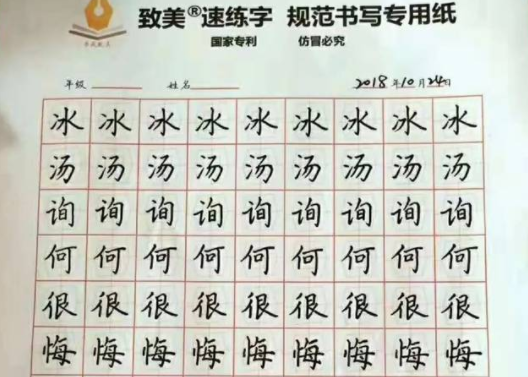 致美®速练字 规范书写专用纸
国家专利 仿冒必究
年级 姓名 2018年10月24日
冰 冰 冰 冰 冰 冰 冰 冰 冰
汤 汤 汤 汤 汤 汤 汤 汤 汤
询 询 询 询 询 询 询 询 询
何 何 何 何 何 何 何 何 何
很 很 很 很 很 很 很 很 很
悔 悔 悔 悔 悔 悔 悔 悔 悔